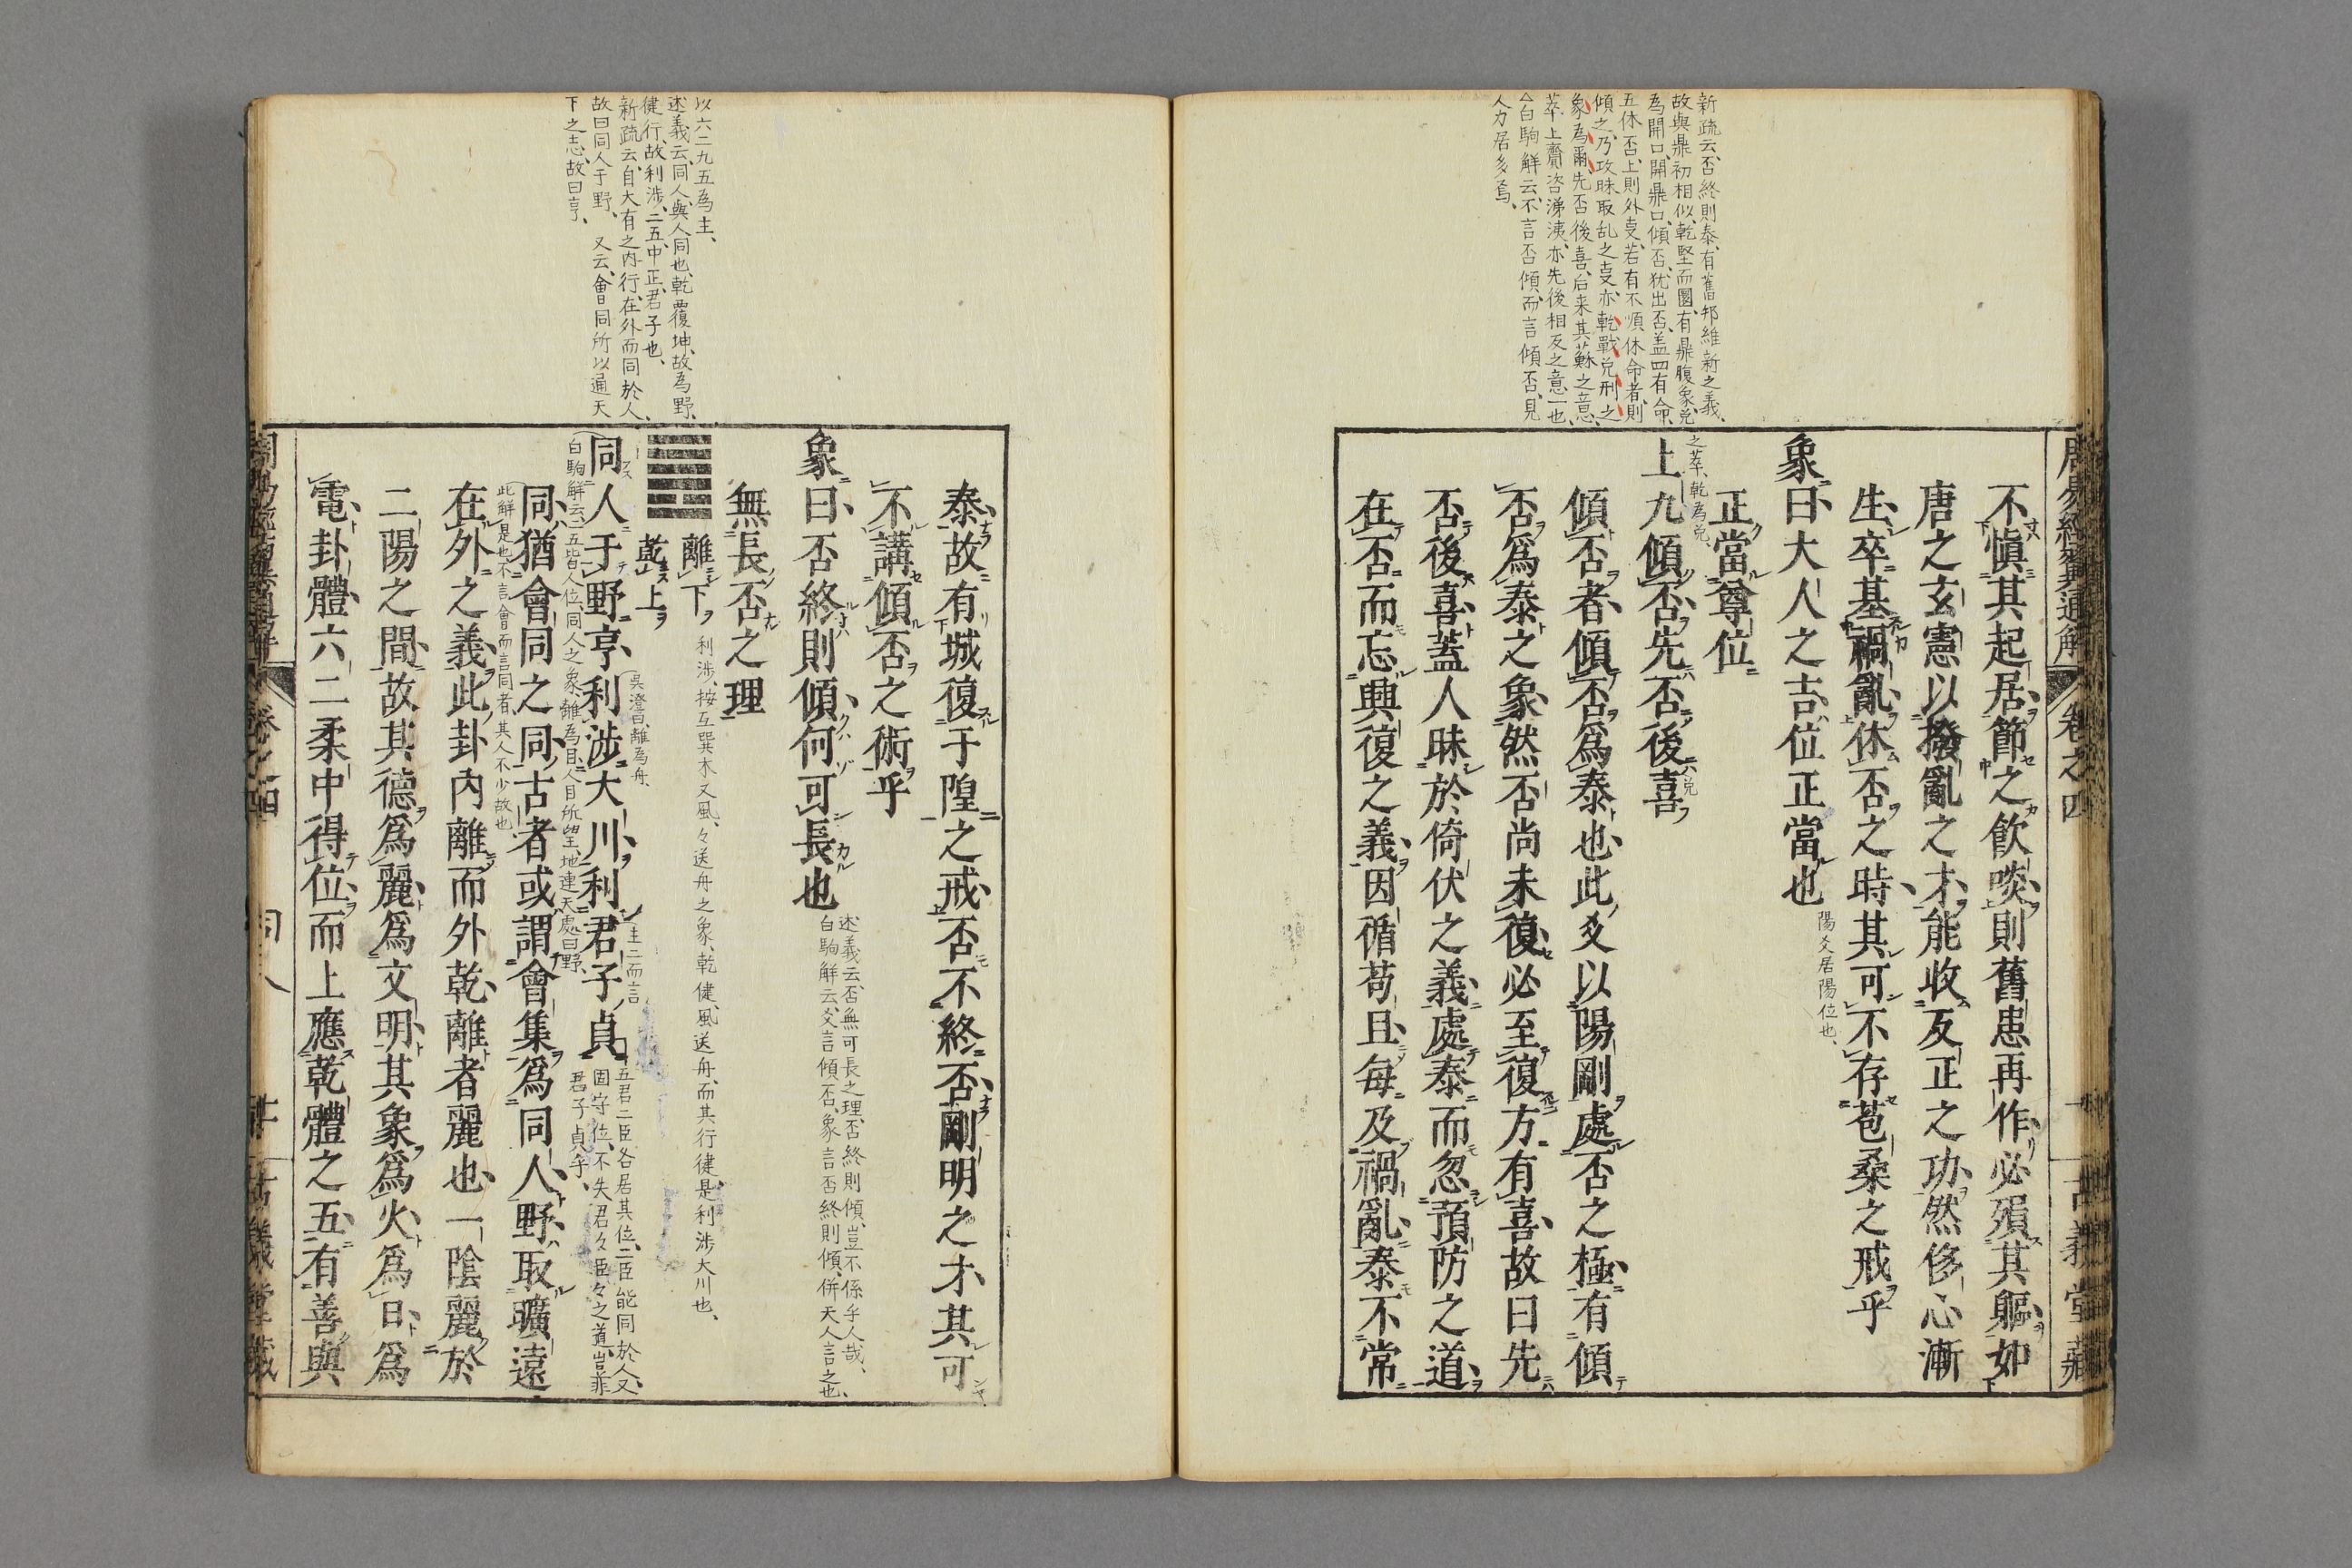 新疏云、否終則泰、有舊邦維新之義、
故與鼎初相似、乾堅而圜、有鼎腹象、兌
為開口、開鼎口、傾否、犹出否、盖四有命、
五休否、上則外変、若有不順休命者、則
傾之、乃攻昧取乱之変、亦乾戰兌刑之
象、為爾、先否後喜、后来其蘇之意、
萃上齎咨涕洟、亦先後相反之意一也、
白駒解云、不言否傾、而言傾否、見
人力居多焉、
周易經翼通解 卷之四 古義堂藏
不愼其起居節之飮啖則舊患再作必殞其軀如
唐之玄憲以撥亂之才能收反正之功然侈心漸
生卒基禍亂休否之時其可不存苞桑之戒乎
象曰大人之吉位正當也
陽爻居陽位也、
正當尊位
之萃、乾為兌、
上九傾否先否後喜
兌
傾否者傾否爲泰也此爻以陽剛處否之極有傾
否爲泰之象然否尚未復必至復方有喜故曰先
否後喜蓋人昧於倚伏之義處泰而忽預防之道
在否而忘興復之義因循苟且每及禍亂泰不常
泰故有城復于隍之戒否不終否剛明之才其可
不講傾否之術乎
象曰否終則傾何可長也
述義云、否無可長之理、否終則傾、豈不係乎人哉、
白駒解云、爻言傾否、象言否終則傾、併天人言之也、
無長否之理
以六二九五為主、
述義云、同人、與人同也、乾覆坤、故為野、
健行、故利渉、二五、中正、君子也、
新疏云、自大有之内行、在外而同於人、
故曰同人于野、 又云、會同所以通天
下之志、故曰亨、
離下
乾上
利渉、按互巽木又風、々送舟之象、乾健、風送舟、而其行健、是利渉大川也、
同人于野亨利涉大川利君子貞
吳澄曰、離為舟、
主二而言
五君二臣各居其位、二臣能同於人、又
固守位、不失君々臣々之道、豈非
君子貞乎、
白駒解云、二五皆人位、同人之象、離為目、人目所望、地連天處曰野、
同猶會同之同古者或謂會集爲同人野取曠遠
此解是也、不言會而言同者、其人不少故也、
在外之義此卦内離而外乾離者麗也一陰麗於
二陽之間故其德爲麗爲文明其象爲火爲日爲
電卦體六二柔中得位而上應乾體之五有善與
卷之四 同人 古義堂藏